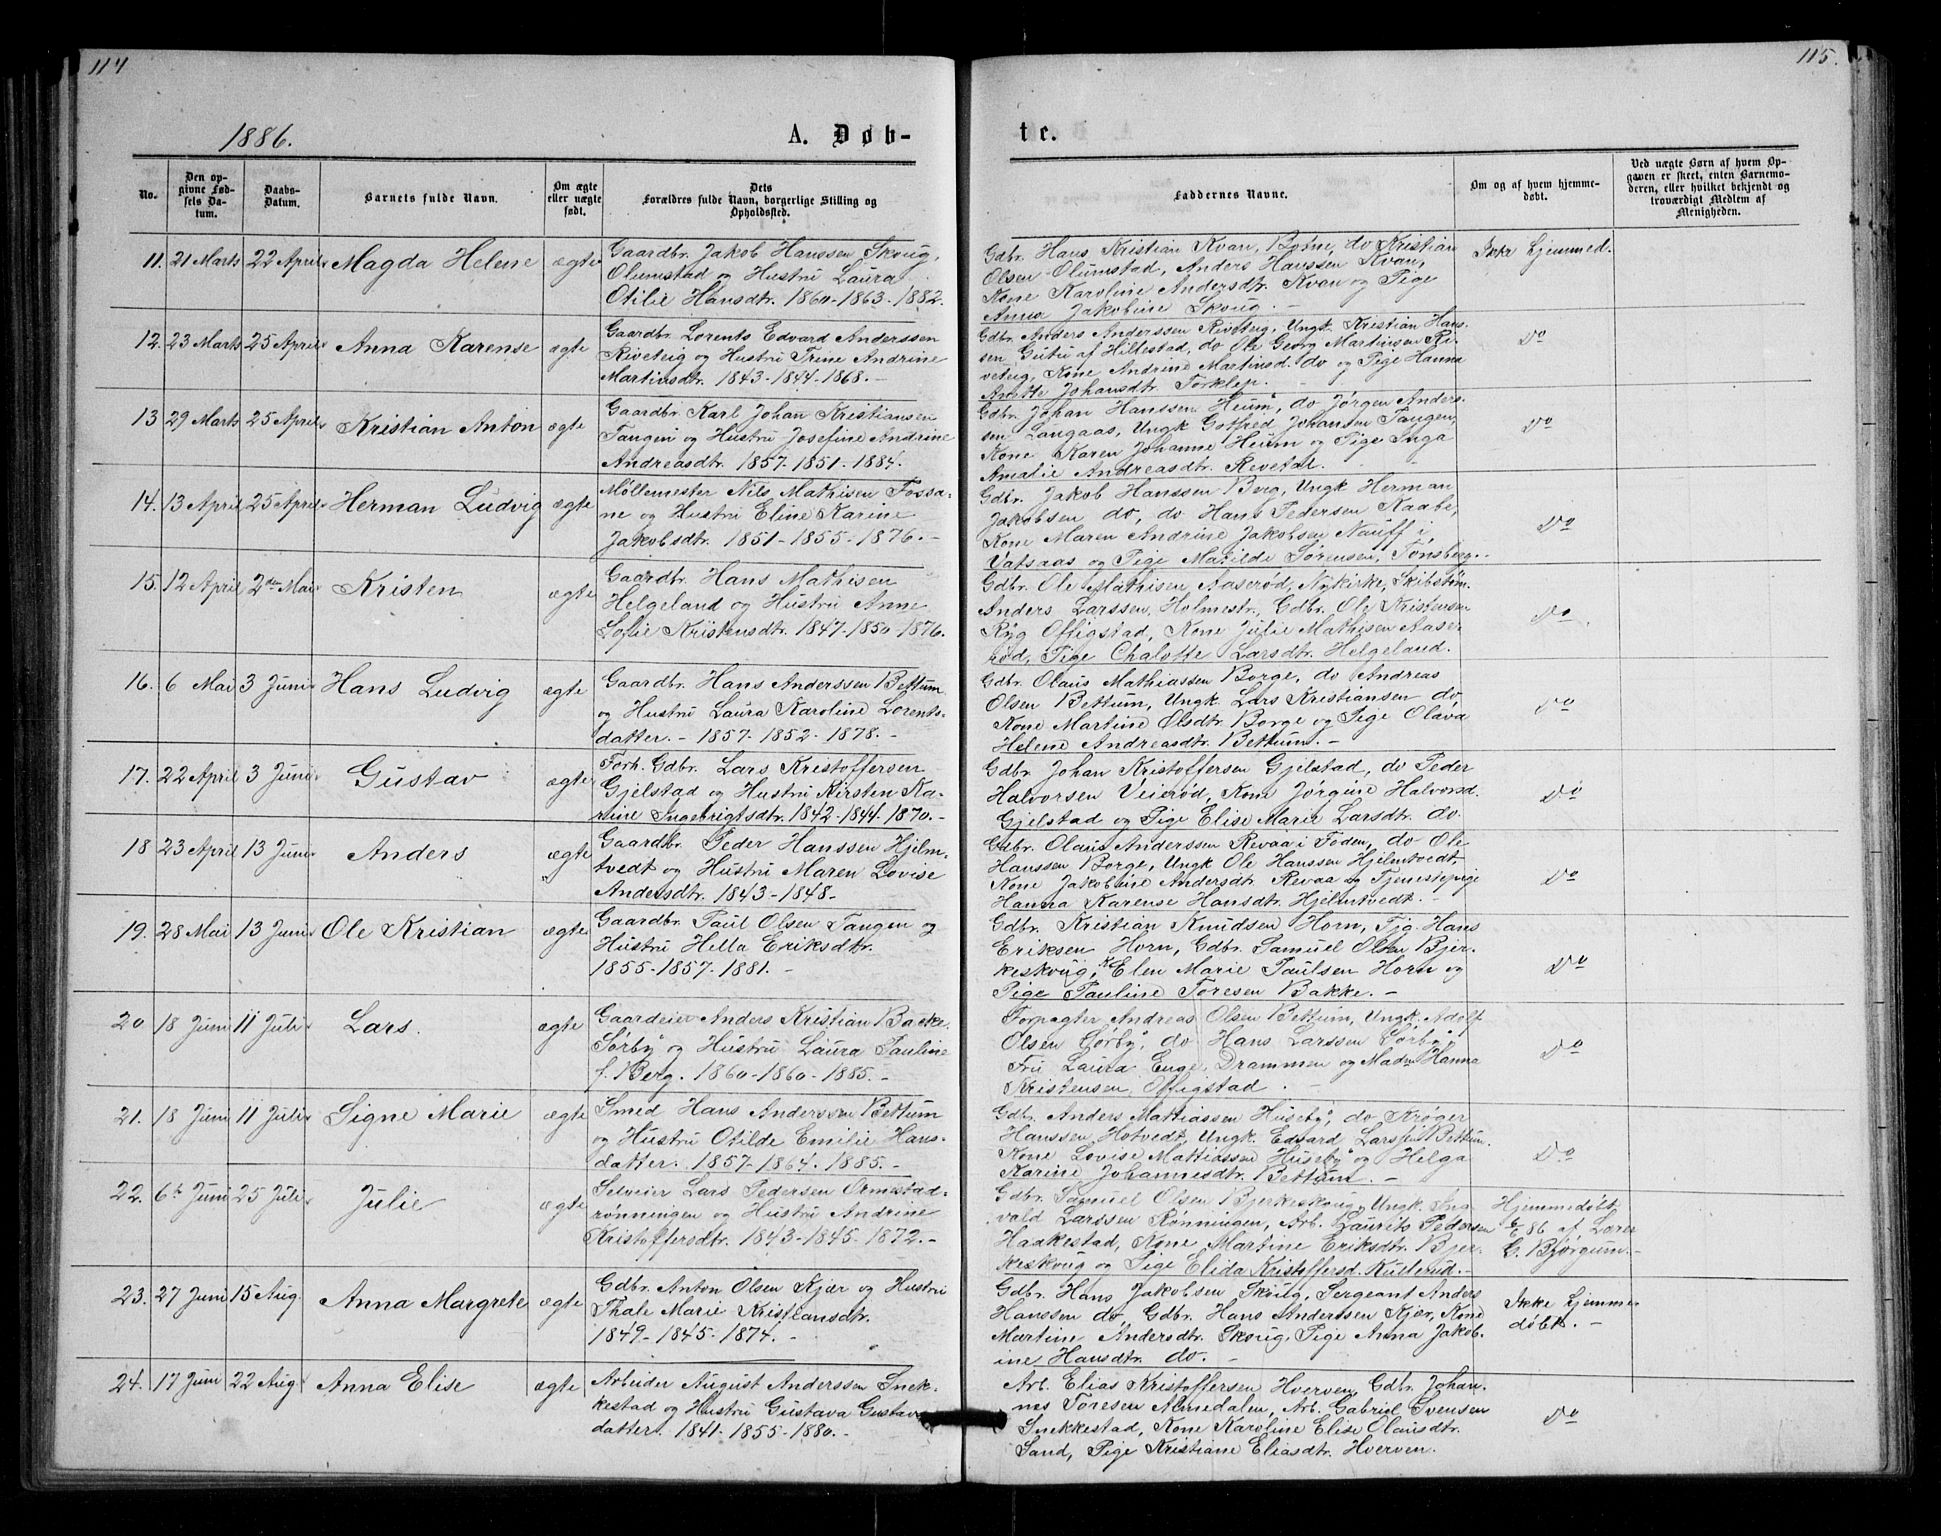 114
1886.
A. Døb-
No.
Den op-
givne Fød-
sels Da-
tum.
Daabs-
Datum.
Barnets fulde Navn.
Om ægte
eller uægte
født.
Dets
Forældres fulde Navn, borgerlige Stilling og
Opholdssted.
11. 21 Marts 22 April Magda Helene ægte
Gaardbr. Jakob Hanssen Skoug,
Olumstad og Hustru Laura
Otilie Hansdtr. 1860-1863-1882.
12. 23 Marts 25 April Anna Karense ægte
Gaardbr. Lorents Edvard Anderssen
Riveteig og Hustru Trine Andrine
Martinsdtr. 1843-1844-1868.-
13 29 Marts 25 April Kristian Anton ægte
Gaardbr. Karl Johan Kristiansen
Tangen og Hustru Josefine Andrine
Andreasdtr. 1857-1851-1884.
14. 13 April 25 April Herman Ludvig ægte
Møllemester Nils Mathisen Fossa-
ne og Hustru Eline Karine
Jakobsdtr. 1851-1855-1876.-
15. 12 April 2den Mai Kristen ægte
Gaardbr. Hans Mathisen
Helgeland og Hustru Anne
Sofie Kristensdtr. 1847-1850-1876.
16. 6 Mai 3 Juni Hans Ludvig ægte
Gaardbr. Hans Anderssen Bettum
og Hustru Laura Karoline Lorents-
datter.- 1857-1852-1878.-
17. 22 April 3 Juni Gustav ægte
Forh. Gdbr. Lars Kristoffersen
Gjelstad og Hustru Kirsten Ka-
rine Ingebrigtsdtr. 1842-1844-1870.-
18 23 April 13 Juni Anders ægte
Gaardbr. Peder Hanssen Hjelm-
tvedt og Hustru Maren Lovise
Andersdtr. 1843-1848-
19. 28 Mai 13 Juni Ole Kristian ægte
Gaardbr. Paul Olsen Tangen og
Hustru Hella Eriksdtr.
1855-1857-1881.-
20 18 Juni 11 Juli Lars. ægte
Gaardeier Anders Kristian Backe
Sørby og Hustru Laura Pauline
f. Berg. 1860-1860-1885.-
21. 18 Juni 11 Juli Signe Marie ægte
Smed Hans Anderssen Bettum
og Hustru Otilde Emilie Hans-
datter. 1857-1864-1885.-
22. 6te Juni 25 Juli Julie ægte
Selveier Lars Pedersen Ormestad-
rønningen og Hustru Andrine
Kristoffersdtr. 1843-1845-1872.-
23. 27 Juni 15 Aug. Anna Margrete ægte
Gdbr. Anton Olsen Kjær og Hustru
Thale Marie Kristiansdtr.
1849-1845-1874.-
24. 17 Juni 22 Aug. Anna Elise ægte
Arbeider August Anderssen Snek-
kestad og Hustru Gustava Gustavs
datter. 1841-1855-1880.-
115.
te.
Faddernes Navne.
Om og af hvem hjemme-
døbt.
Ved uægte Børn af hvem Op-
gaven er skeet, enten Barnemo-
deren, eller hvilket bekjendt og
troværdigt Medlem af
Menigheden.
Gdbr. Hans Kristian Kvan, Botne, do Kristian
Olsen Olumstad, Anders Hanssen Kvan,
Kone Karoline Andersdtr. Kvan og Pige
Anna Jakobine Skoug.-
Ikke hjemmed.
Gdbr. Anders Anderssen Riveteig, Ungk. Kristian Hans-
sen Gutu af Hillestad, do Ole Georg Martinsen Ri-
veteig, Kone Andrine Martinsd. do og Pige Hanna
Anette Johansdtr. Torklep.-
Do
Gdbr. Johan Hanssen Heum, do Jørgen Anders-
sen Langaas, Ungk Gotfred Johansen Tangen,
Kone Karen Johanne Heum og Pige Inga
Amalie Andreasdtr. Revetal.-
Do
Gdbr. Jakob Hanssen Berg, Ungk Herman
Jakobsen do, do Hans Pedersen Raabe,
Kone Maren Andrine Jakobsen Nauff i
Vatsaas og Pige Matilde Sørensen, Tønsberg.-
Do
Gdbr. Ole Mathisen Aaserød, Nykirke, Skibstøm.
Anders Larssen, Holmestr., Gdbr. Ole Kristensen
Ryg Offigstad, Kone Julie Mathisen Aase-
rød, Pige Chalotte Larsdtr. Helgeland.
Do
Gdbr. Olaus Mathiassen Borge, do Andreas
Olsen Bettum, Ungk. Lars Kristiansen do,
Kone Martine Olsdtr. Borge og Pige Olava
Helene Andreasdtr. Bettum.-
Do
Gdbr. Johan Kristoffersen Gjelstad, do Peder
Halvorsen Veierød, Kone Jørgine Halvorsd.
Gjelstad og Pige Elise Marie Larsdtr. do.
Do
Gdbr. Olaus Anderssen Revaa i Foden, do Ole
Hanssen Borge, Ungk Ole Hanssen Hjelmtvedt
Kone Jakobine Andersdtr. Revaa og Tjenestepige
Hanna Karense Hansdtr. Hjelmtvedt.-
Do
Gdbr. Kristian Knudsen Horn, Tjg. Hans
Eriksen Horn, Gdbr. Samuel Olsen Bjer-
keskoug, K Elen Marie Paulsen Horn og
Pige Pauline Toresen Bakke.-
Do
Forpagter Andreas Olsen Bettum, Ungk. Adolf
Olsen Sørby, do Hans Larssen Sørby,
Fru Laura Enge, Drammen og Madm Hanna
Kristensen Offigstad.-
Do
Gdbr. Anders Mattiassen Huseby, do Krøger
Hanssen Hotvedt, Ungk. Edvard Larssen Bettum.
Kone Lovise Mattiassen Huseby og Helga
Karine Johannesdtr. Bettum.-
Do
Gdbr. Samuel Olsen Bjerkeskoug, Ungk. Ing-
vald Larssen Rønningen, Arb. Laurits Pedersen
Haakestad, Kone Martine Eriksdtr. Bjer-
keskoug og Pige Elida Kristoffersd. Kullerud.-
Hjemmedøbt
6/6 86 af Lærer
G. Bjørgum.-
Gdbr. Hans Jakobsen Skoug, Sergeant Anders
Hanssen do, Gdbr. Hans Anderssen Kjær, Kone
Martine Andersdtr. Skoug, Pige Anna Jakob-
ine Hansdtr. do.-
Ikke hjemme
døbt.-
Arb. Elias Kristoffersen Hverven, Gdbr. Johan-
nes Toresen Almedalen, Arb. Gabriel Svensen
Snekkestad, Kone Karoline Elise Olausdtr.
Sand, Pige Kristiane Eliasdtr. Hverven.
Do